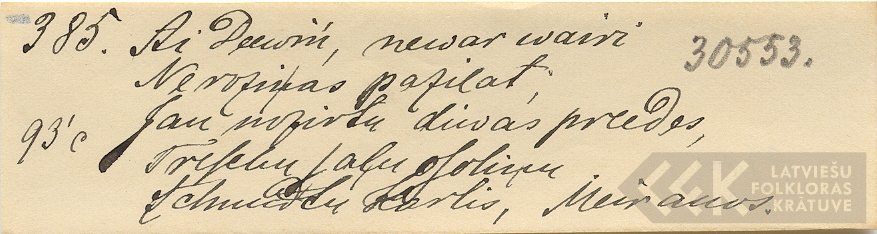 385. Ai Deewiń, newar wairi 30553.
Neroziņas pazilat;
93'c Jau nozirtu diwās preedes,
Treschu saļu osoliņu
Schmidtu Karlis, Meiranos.
LATVIEŠU
FOLKLORAS
KRĀTUVE